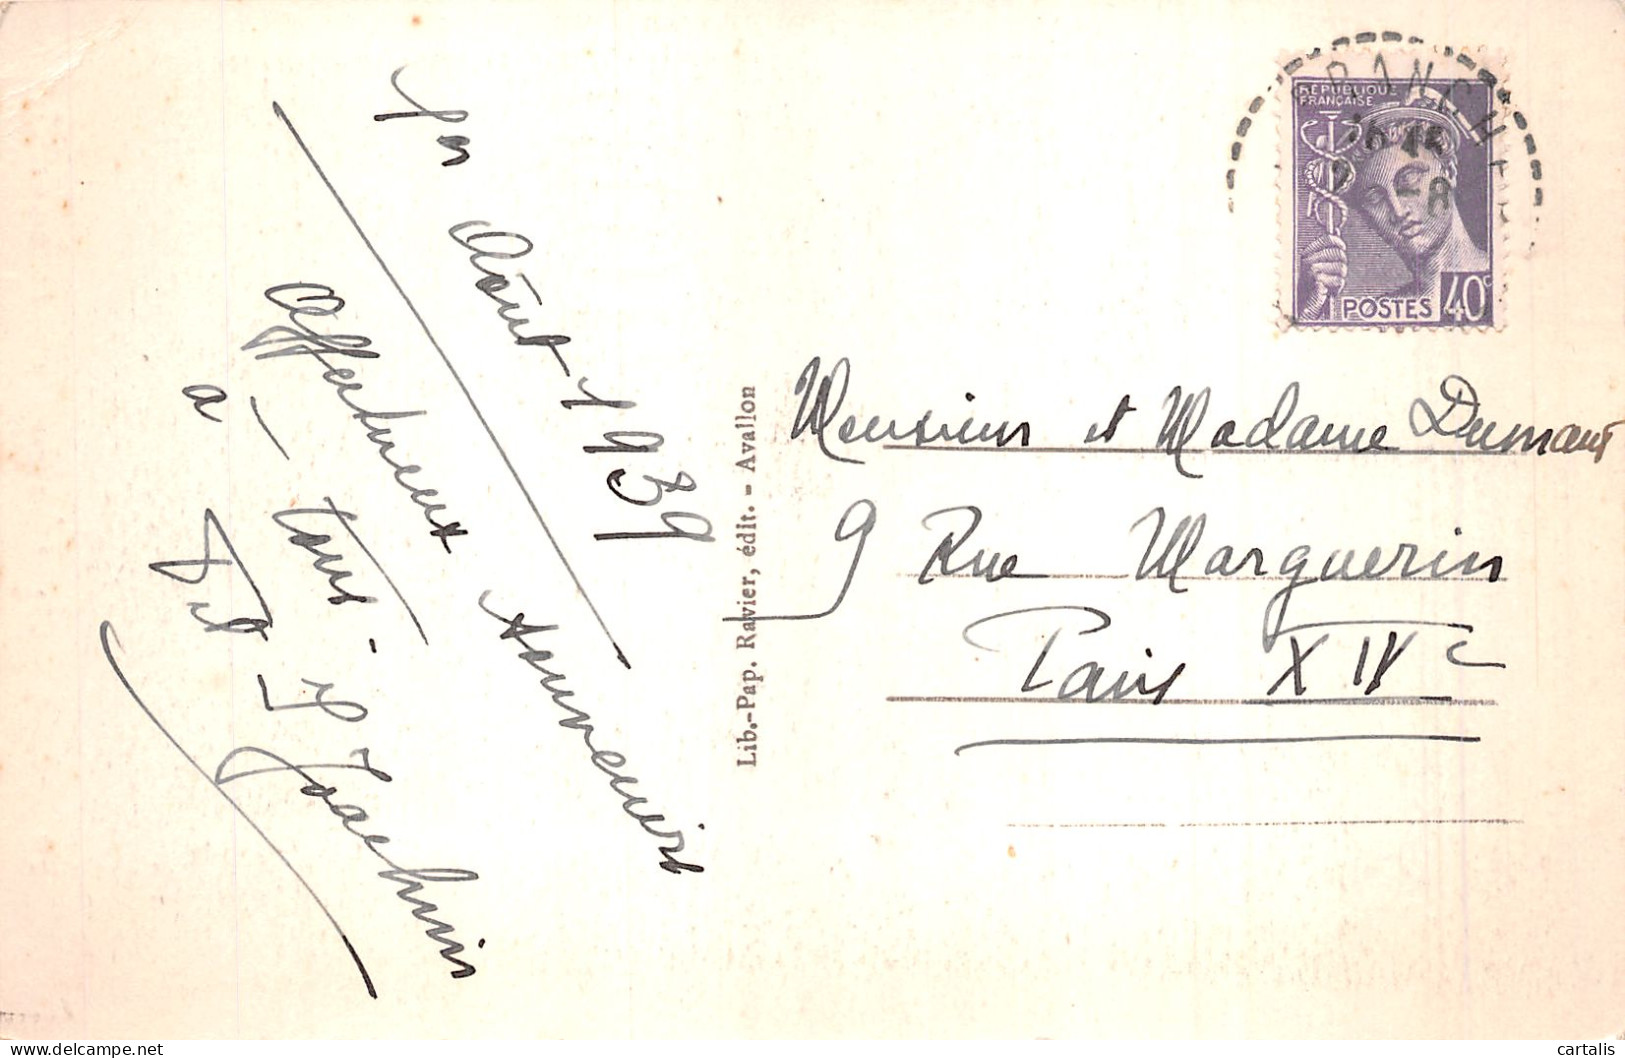 Août 1939
Affectueux souvenirs
à tous.
Joachim
Lib.-Pap. Ravier, édit. - Avallon
RÉPUBLIQUE
FRANÇAISE
POSTES 40c
Monsieur et Madame Dumant
9 Rue Marguerin
Paris XIVe
cartalis
delcampe.net